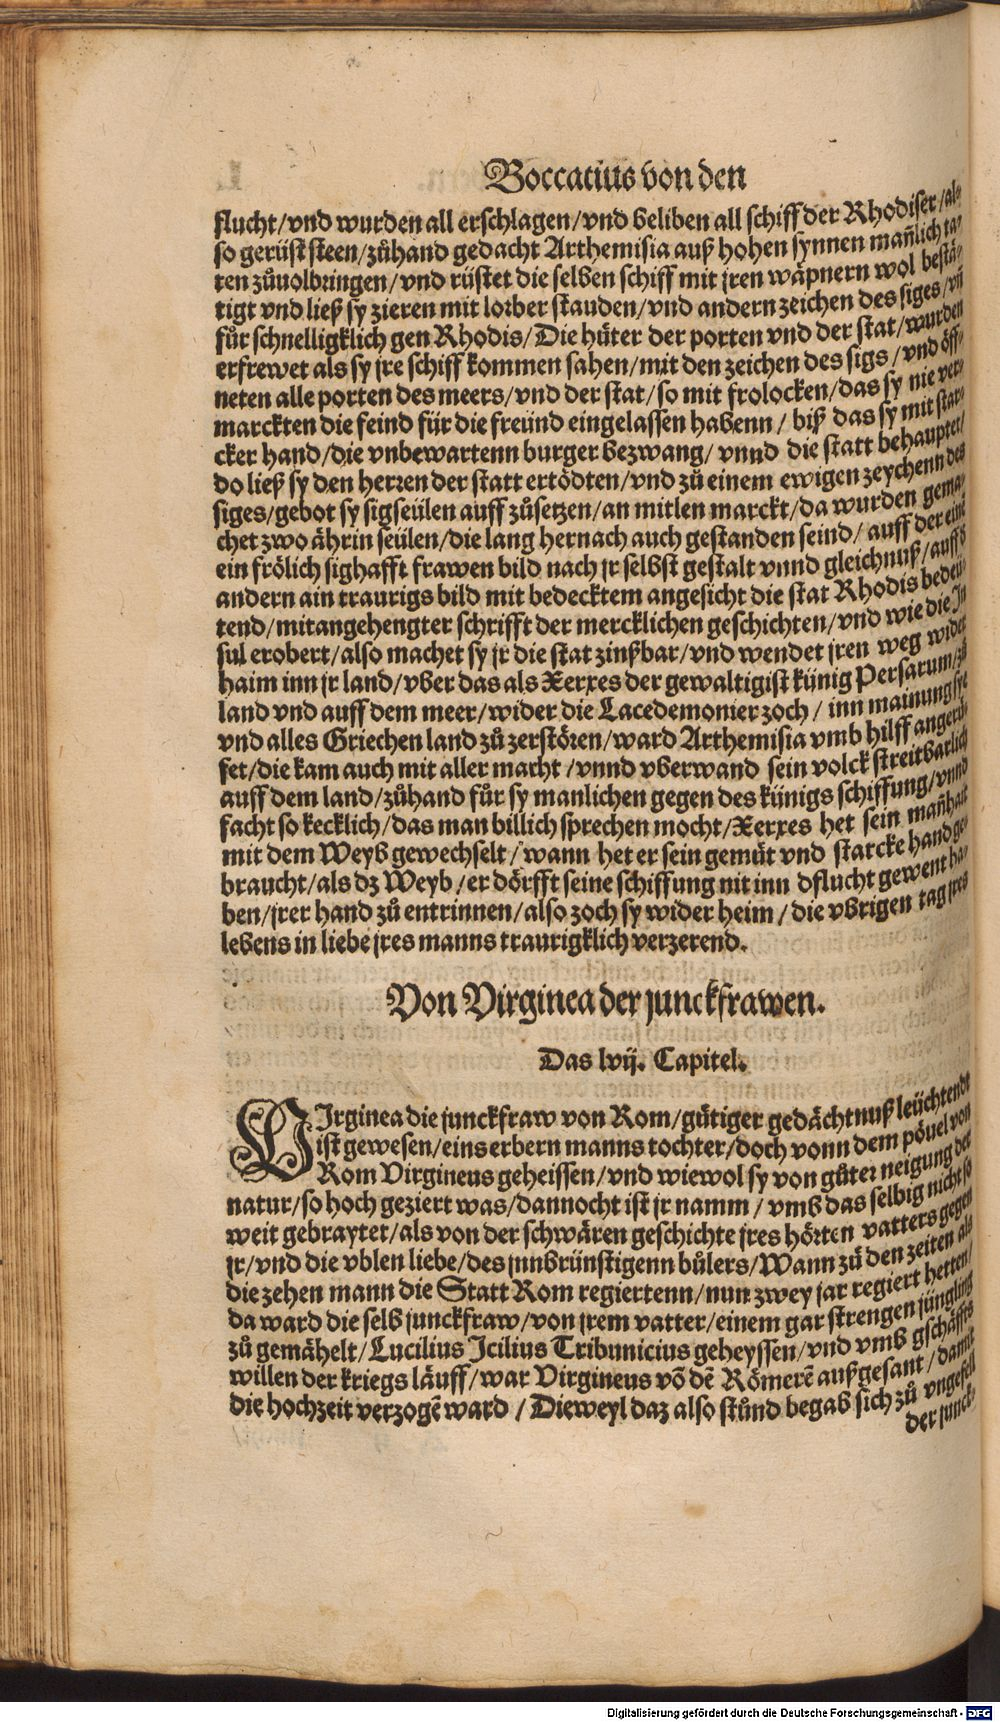 Boccatius von den
flucht/vnd wurden all erschlagen/vnd beliben all schiff der Rhodiser/al-
so gerüst steen/zůhand gedacht Arthemisia auß hohen synnen mañlich ta-
ten zůuolbringen/vnd rüstet die selben schiff mit jren wäpnern wol bestä-
tigt vnd ließ sy zieren mit lorber stauden/vnd andern zeichen des siges/vñ
fůr schnelligklich gen Rhodis/Die hüter der porten vnd der stat/wurden
erfrewet als sy jre schiff kommen sahen/mit den zeichen des sigs/vnd öff-
neten alle porten des meers/vnd der stat/so mit frolocken/das sy nie ver-
marckten die feind für die freünd eingelassen habenn/biß das sy mit star-
cker hand/die vnbewartenn burger bezwang/vnnd die statt behauptet/
do ließ sy den herren der statt ertödten/vnd zů einem ewigen zeychenn des
siges/gebot sy sigseülen auff zůsetzen/an mitlen marckt/da wurden gema-
chet zwo ährin seülen/die lang hernach auch gestanden seind/auff der eine
ein frölich sighafft frawen bild nach jr selbst gestalt vnnd gleichnuß/auff d
andern ain traurigs bild mit bedecktem angesicht die stat Rhodis bedeü-
tend/mitangehengter schrifft der mercklichen geschichten/vnd wie die In
sul erobert/also machet sy jr die stat zinßbar/vnd wendet jren weg wider
haim inn jr land/vber das als Xerxes der gewaltigist künig Persarum/zů
land vnd auff dem meer/wider die Lacedemonier zoch/inn mainung sye
vnd alles Griechen land zů zerstören/ward Arthemisia vmb hilff angerů-
fet/die kam auch mit aller macht/vnnd vberwand sein volck streitbarlich
auff dem land/zůhand fůr sy manlichen gegen des künigs schiffung/vnnd
facht so kecklich/das man billich sprechen mocht/Xerxes het sein mañhait
mit dem Weyb gewechselt/wann het er sein gemüt vnd starcke hand ge-
braucht/als dz Weyb/er dörfft seine schiffung nit inn dflucht gewent ha-
ben/jrer hand zů entrinnen/also zoch sy wider heim/die vbrigen tag jres
lebens in liebe jres manns traurigklich verzerend.
Von Virginea der junckfrawen.
Das lvij. Capitel.
VIrginea die junckfraw von Rom/gütiger gedächtnuß leüchtendt
ist gewesen/eins erbern manns tochter/doch vonn dem pöuel von
Rom Virgineus geheissen/vnd wiewol sy von gůter neigung der
natur/so hoch geziert was/dannocht ist jr namm/vmb das selbig nicht so
weit gebraytet/als von der schwären geschichte jres hörten vatters gegen
jr/vnd die vblen liebe/des jnnbrünstigenn bůlers/Wann zů den zeiten als
die zehen mann die Statt Rom regiertenn/nun zwey jar regiert hetten/
da ward die selb junckfraw/von jrem vatter/einem gar strengen jüngling
zů gemähelt/Lucilius Icilius Tribunicius geheyssen/vnd vmb gschäffts
willen der kriegs läuff/war Virgineus võ dẽ Römerẽ außgesant/damit
die hochzeit verzogẽ ward/Dieweyl daz also stůnd begab sich zů vngefell
der junck-
Digitalisierung gefördert durch die Deutsche Forschungsgemeinschaft - DFG